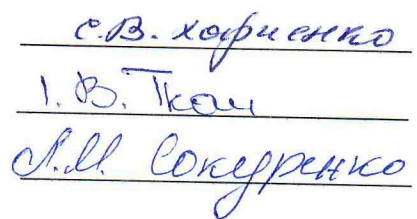 С.В. Хофиенко
І. В. Ткач
Л.М. Сокуренко